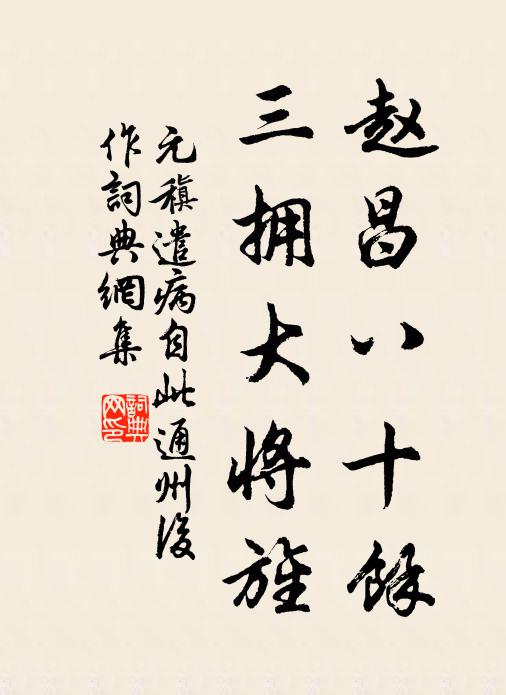 赵昌八十餘
三拥大将旌
元稹遣病自此通州後
作詞典網集
詞典
网印